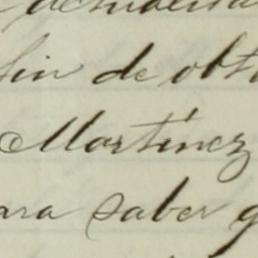 fin de obt
Martínez
ara saber q